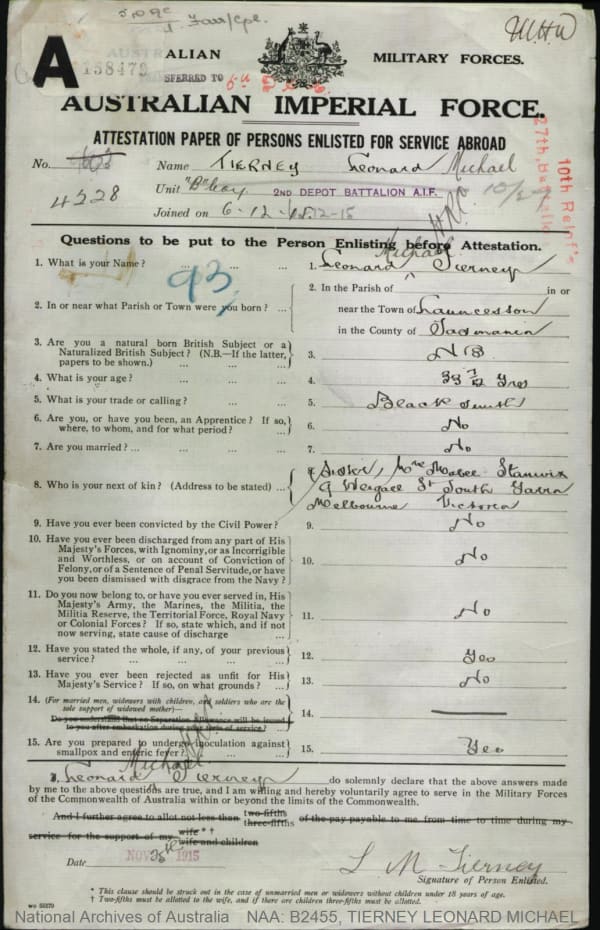 A
ALIAN MILITARY FORCES.
158479
SFERRED TO
AUSTRALIAN IMPERIAL FORCE.
ATTESTATION PAPER OF PERSONS ENLISTED FOR SERVICE ABROAD
No. Name TIERNEY Leonard Michael
4228 Unit "B" Coy 2ND DEPOT BATTALION A.I.F. 10/27
Joined on 6-12-15
10th Reinf's
27th Battalion
Questions to be put to the Person Enlisting before Attestation.
Michael
1. What is your Name? ... ... ... 1. Leonard ^ Tierney
93
2. In or near what Parish or Town were you born? ... 2. In the Parish of in or
near the Town of Launceston
in the County of Tasmania
3. Are you a natural born British Subject or a
Naturalized British Subject? (N.B.—If the latter,
papers to be shown.) ... ... ... 3. N B
4. What is your age? ... ... ... 4. 39 7/12 Yrs
5. What is your trade or calling? ... ... ... 5. Black smith
6. Are you, or have you been, an Apprentice? If so,
where, to whom, and for what period? ... 6. No
7. Are you married? ... ... ... ... 7. No
8. Who is your next of kin? (Address to be stated) ... 8. Sister, Mrs Stanwix
9 St South Yarra
Melbourne Victoria
9. Have you ever been convicted by the Civil Power? 9. No
10. Have you ever been discharged from any part of His
Majesty's Forces, with Ignominy, or as Incorrigible
and Worthless, or on account of Conviction of
Felony, or of a Sentence of Penal Servitude, or have
you been dismissed with disgrace from the Navy? 10. No
11. Do you now belong to, or have you ever served in, His
Majesty's Army, the Marines, the Militia, the
Militia Reserve, the Territorial Force, Royal Navy
or Colonial Forces? If so, state which, and if not
now serving, state cause of discharge ... 11. No
12. Have you stated the whole, if any, of your previous
service? ... ... ... ... 12. Yes
13. Have you ever been rejected as unfit for His
Majesty's Service? If so, on what grounds? ... 13. No
14. (For married men, widowers with children, and soldiers who are the
sole support of widowed mother)—
Do you understand that no Separation Allowance will be issued
to you after embarkation during your term of service? 14.
15. Are you prepared to undergo inoculation against
smallpox and enteric fever? ... ... 15. Yes
Michael
I, Leonard ^ Tierney do solemnly declare that the above answers made
by me to the above questions are true, and I am willing and hereby voluntarily agree to serve in the Military Forces
of the Commonwealth of Australia within or beyond the limits of the Commonwealth.
And I further agree to allot not less than two-fifths three-fifths of the pay payable to me from time to time during my
service for the support of my wife * † wife and children
Date NOV 1915
L M Tierney
Signature of Person Enlisted.
* This clause should be struck out in the case of unmarried men or widowers without children under 18 years of age.
† Two-fifths must be allotted to the wife, and if there are children three-fifths must be allotted.
National Archives of Australia NAA: B2455, TIERNEY LEONARD MICHAEL